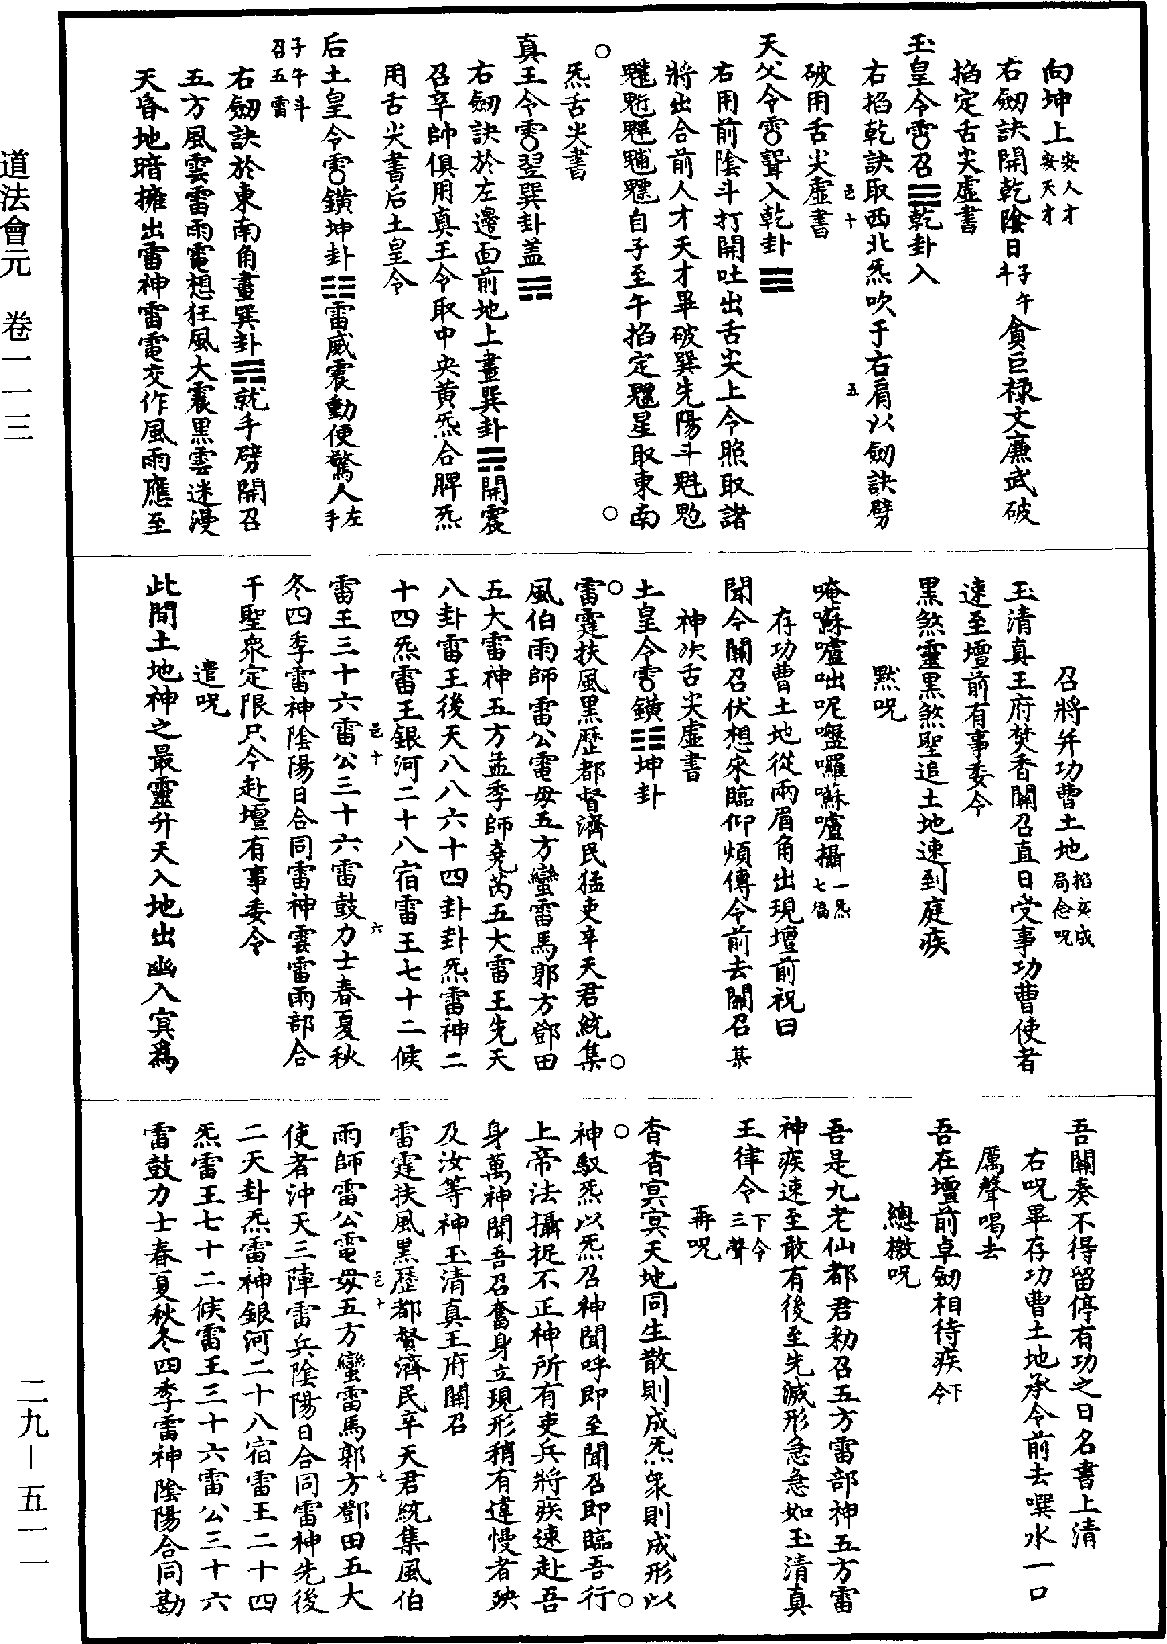 向坤上安人才安天才
右劒訣開乾陰日子午斗貪巨祿文廉武破
掐定舌尖虛書
玉皇令䨻召☰乾卦入
右掐乾訣取西北炁吹于右肩以劒訣劈
破用舌尖虛書
天父令䨻聲入乾卦☰
右用前陰斗打開吐出舌尖上令照取諸
將出合前人才天才畢破巽先陽斗魁
自子至午掐定魒星取東南
炁舌尖書
真王令䨻翌巽卦蓋☴
右劒訣於左邊面前地上畫巽卦☴開震
召辛帥俱用真王令取中央黃炁合脾炁
用舌尖書后土皇令
后土皇令䨻鐄坤卦☷雷威震動便驚人左手
子午斗召五雷
右劒訣於東南角畫巽卦☴就手劈開召
五方風雲雷雨電想狂風大震黑雲迷漫
天昏地暗擁出雷神雷電交作風雨應至
召將并功曹土地掐亥戌局念呪
玉清真王府焚香關召直日受事功曹使者
速至壇前有事委令
黑煞靈黑煞聖追土地速到庭疾
默呪
唵囌嚧咄呢囉囌嚧攝一炁七徧
存功曹土地從兩眉角出現壇前祝曰
聞今關召伏想來臨仰煩傳令前去關召某
神次舌尖虛書
土皇令䨻鐄☷坤卦
雷霆扶風黑歷都督濟民猛吏辛天君統集
風伯雨師雷公電母五方蠻雷馬郭方鄧田
五大雷神五方孟季師堯芮五大雷王先天
八卦雷王後天八八六十四卦卦炁雷神二
十四炁雷王銀河二十八宿雷王七十二候
雷王三十六雷公三十六雷鼓力士春夏秋
冬四季雷神陰陽日合同雷神雲雷雨部合
干聖衆定限只今赴壇有事委令
遣呪
此間土地神之最靈升天入地出幽入冥爲
吾關奏不得留停有功之日名書上清
右呪畢存功曹土地承令前去噀水一口
厲聲喝去
吾在壇前卓劒相待疾下令
總檄呪
吾是九老仙都君勑召五方雷部神五方雷
神疾速至敢有後至先滅形急急如玉清真
王律令下令三聲
再呪
杳杳冥冥天地同生散則成炁聚則成形以
神馭炁以炁召神聞呼即至聞召即臨吾行
上帝法攝捉不正神所有吏兵將疾速赴吾
身萬神聞吾召奮身立現形稍有違慢者殃
及汝等神玉清真王府關召
雷霆扶風黑歷都督濟民辛天君統集風伯
雨師雷公電母五方蠻雷馬郭方鄧田五大
使者沖天三陣雷兵陰陽日合同雷神先後
二天卦炁雷神銀河二十八宿雷王二十四
炁雷王七十二候雷王三十六雷公三十六
雷鼓力士春夏秋冬四季雷神陰陽合同勘
道法會元　卷一一三
二九—五一一